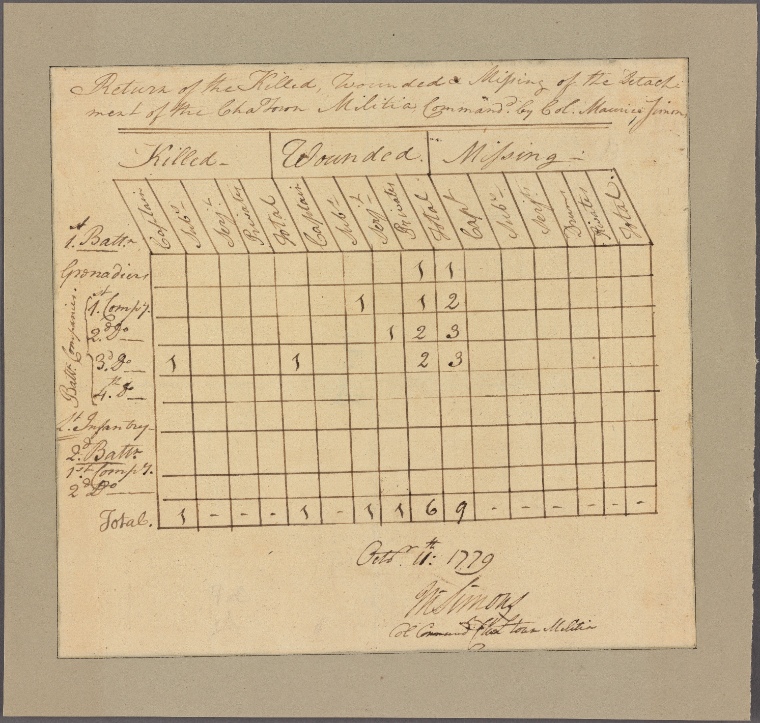 Return of the Killed, Wounded & Missing of the Detach-
ment of the Chastown Militia Command.d by Col. Maurice Simons
Killed- Wounded. Missing-
1.st Batt.n Captain Sub.s Serj.t Privates Total Captain Sub.s Serj.t Privates Total Cap.t Sub.s Serj.t Drums Privates Total
Grenadiers 1 1
Batt.n Companies.
1.st Comp.y. 1 1 2
2.d D.o 1 2 3
3.d D.o 1 1 2 3
4.th D.o
L.t Infantry
2.d Batt.n
1.st Comp.y.
2.d D.o
Total. 1 - - - 1 - 1 1 6 9 - - - - - -
Octo.r 11.th: 1779
M Simons
Col Command.g Chas town Militia